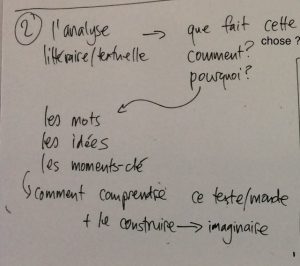 2) l'analyse → que fait cette chose?
littéraire/textuelle comment?
pourquoi?
les mots
les idées
les moments-clé
↳ comment comprendre ce texte/monde
+ le construire → imaginaire